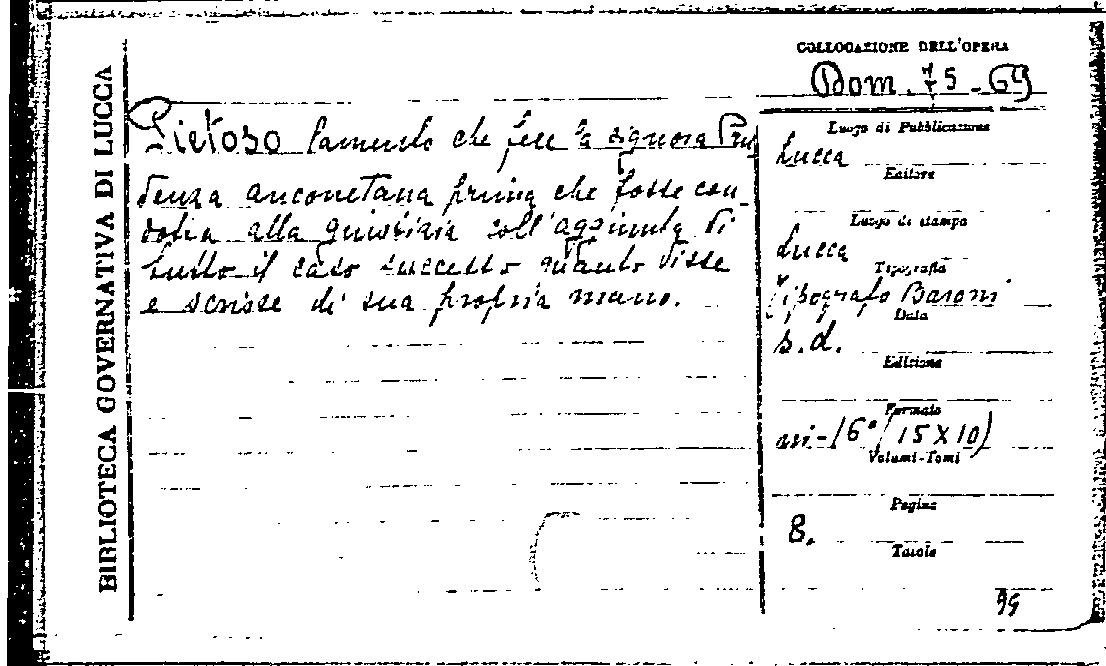 BIBLIOTECA GOVERNATIVA DI LUCCA
COLLOCAZIONE DELL'OPERA
Dom. 75-69
Pietoso lamento che fece la signora Pru
denza anconetana prima che fosse con-
dotta alla giustizia coll'aggiunta di
tutto il caso successo quanto disse
e scrisse di sua propria mano.
Luogo di Pubblicazione
Lucca
Editore
Luogo di stampa
Lucca
Tipografia
Tipografo Baroni
Data
s.d.
Edizione
Formato
in-16° (15X10)
Volumi-Tomi
Pagine
8.
Tavole
99